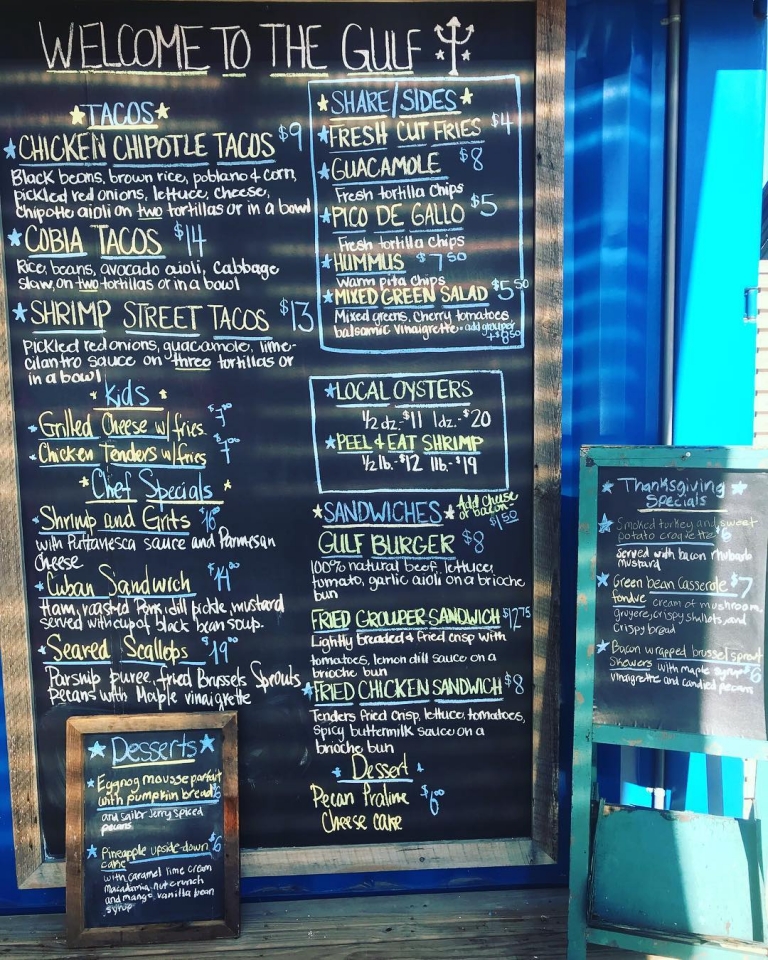 WELCOME TO THE GULF
TACOS
CHICKEN CHIPOTLE TACOS $9
Black beans, brown rice, poblano & corn,
pickled red onions, lettuce, cheese,
chipotle aioli on two tortillas or in a bowl
COBIA TACOS $14
Rice, beans, avocado aioli, Cabbage
slaw, on two tortillas or in a bowl
SHRIMP STREET TACOS $13
Pickled red onions, guacamole, lime-
cilantro sauce on three tortillas or
in a bowl
Kids
Grilled Cheese w/fries $7⁰⁰
Chicken Tenders w/fries $7⁰⁰
Chef Specials
Shrimp and Grits $16
with Puttanesca sauce and Parmesan
Cheese
Cuban Sandwich $14⁰⁰
Ham, roasted Pork, dill pickle, mustard
served with cup of black bean soup.
Seared Scallops $19⁰⁰
Parsnip puree, fried Brussels Sprouts
Pecans with Maple vinaigrette
SHARE/SIDES
FRESH CUT FRIES $4
GUACAMOLE $8
Fresh tortilla chips
PICO DE GALLO $5
Fresh tortilla chips
HUMMUS $7⁵⁰
Warm pita chips
MIXED GREEN SALAD $5⁵⁰
Mixed greens, cherry tomatoes,
balsamic vinaigrette - add grouper
+$8⁵⁰
LOCAL OYSTERS
1/2 dz.-$11 1dz.-$20
PEEL & EAT SHRIMP
1/2 lb.-$12 1lb.-$19
SANDWICHES
Add cheese
or bacon
$1⁵⁰
GULF BURGER $8
100% natural beef, lettuce,
tomato, garlic aioli on a brioche
bun
FRIED GROUPER SANDWICH $12⁷⁵
Lightly breaded & fried crisp with
tomatoes, lemon dill sauce on a
brioche bun
FRIED CHICKEN SANDWICH $8
Tenders fried crisp, lettuce, tomatoes,
spicy buttermilk sauce on a
brioche bun
Dessert
Pecan Praline $6⁰⁰
Cheese cake
Desserts
Eggnog mousse parfait
with pumpkin bread $6
and sailor Jerry spiced
pecans
Pineapple upside-down $6
cake
with caramel lime cream
macadamia nut crunch
and mango vanilla bean
syrup
Thanksgiving
Specials
Smoked turkey and sweet
potato croquettes $6
served with bacon rhubarb
mustard
Green bean Casserole $7
fondue cream of mushroom,
gruyere, crispy shallots, and
Crispy bread
Bacon wrapped brussel sprout
skewers with maple syrup $6
vinaigrette and candied pecans